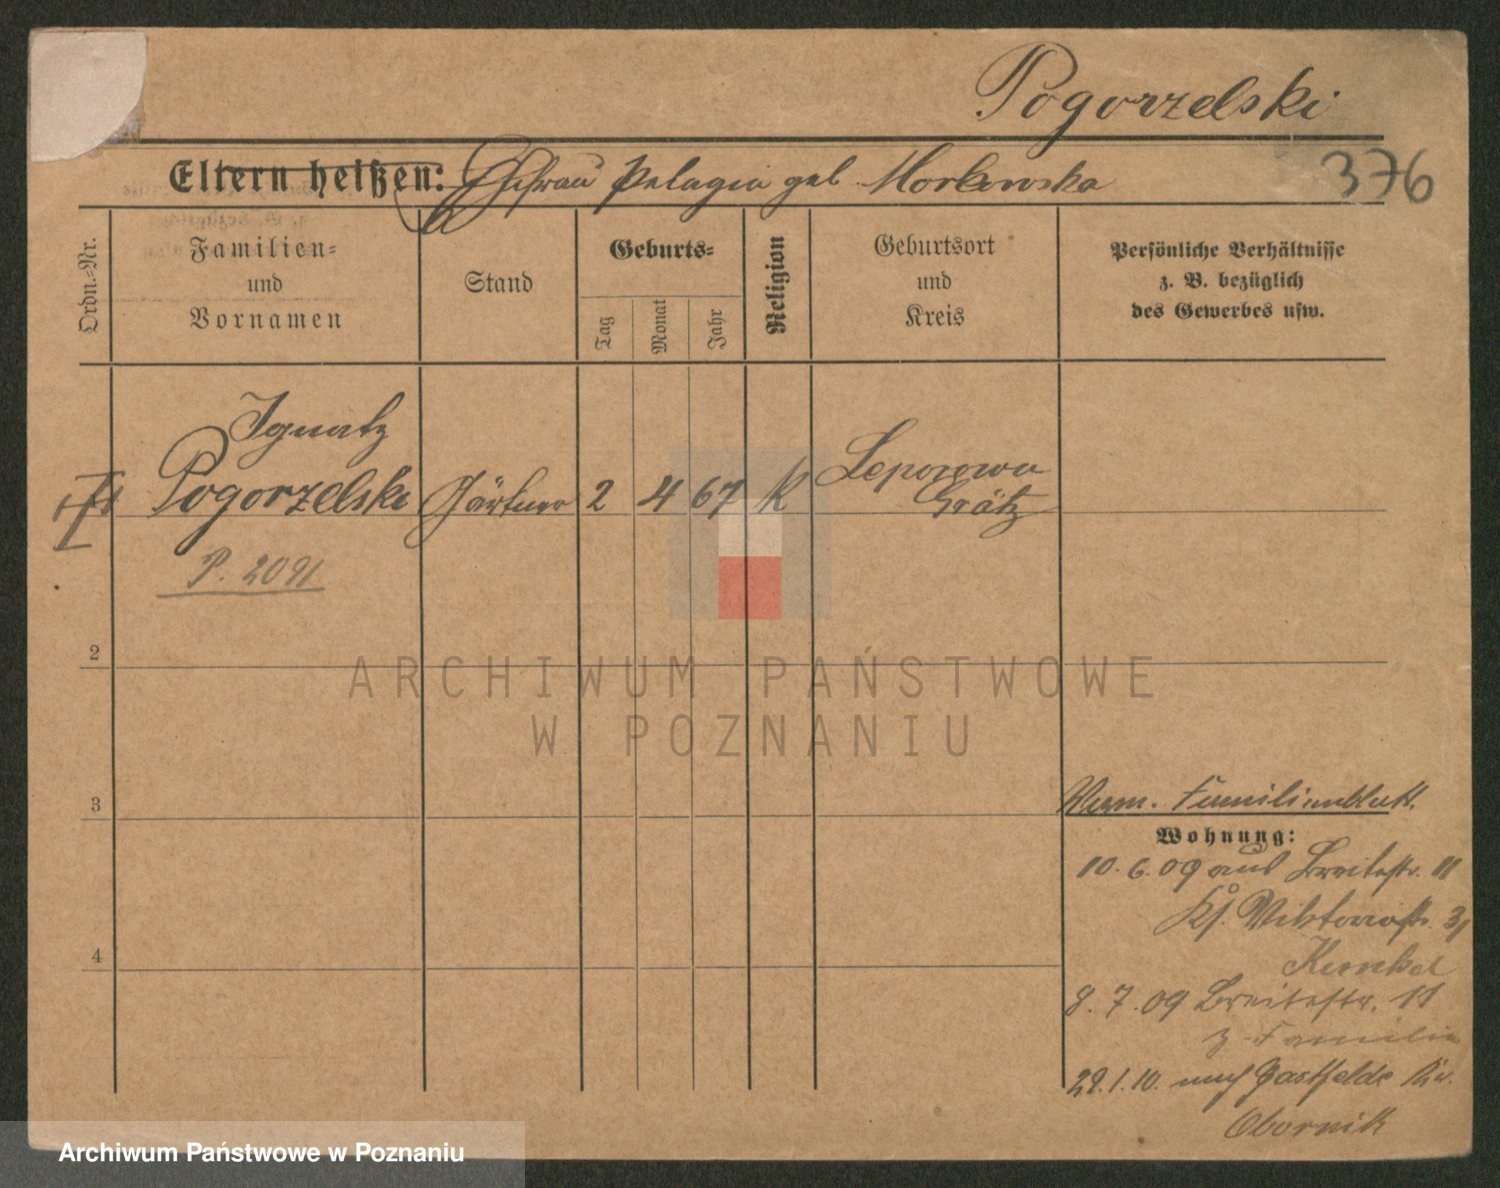 Pogorzelski
376
Eltern heißen: Ehefrau Pelagia geb
Ordn.-Nr.
Familien-
und
Vornamen
Stand
Geburts-
Tag
Monat
Jahr
Religion
Geburtsort
und
Kreis
Persönliche Verhältnisse
z. B. bezüglich
des Gewerbes usw.
Ignatz
Pogorzelski Gärtner 2 4 67 K
Grätz
P. 2091
2
ARCHIWUM PAŃSTWOWE
W POZNANIU
3
Familienblatt.
Wohnung:
10.6.09 aus Breitestr. 11
Viktoriastr.
Kunkel
4
8.7.09 Breitestr. 11
z Familie
29.1.10. nach
Obornik
Archiwum Państwowe w Poznaniu